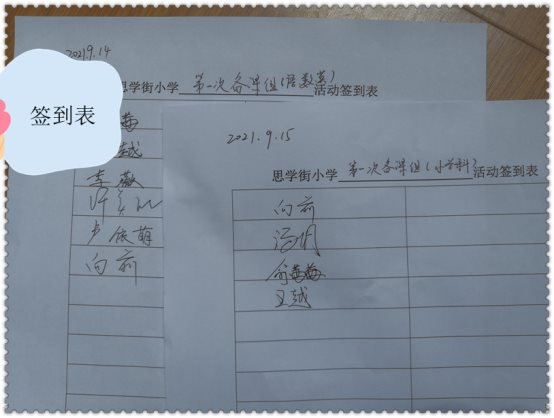 签到表
2021 9.14
思学街小学 第一次备课组(语数英) 活动签到表
越
李薇
许
步依萌
向前
2021.9.15
思学街小学 第一次备课组(小学科) 活动签到表
向前
冯帆
俞莓莓
王越